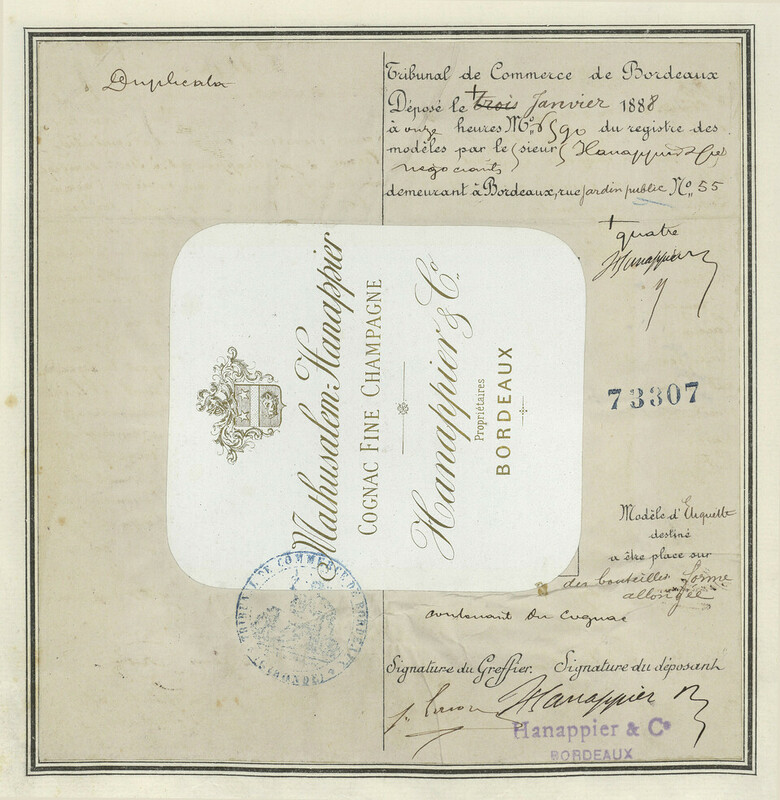 Duplicata
Tribunal de Commerce de Bordeaux
Déposé le + trois Janvier 1888
à onze heures M. No 6590 du registre des
modèles par le sieur Hanappier & Cie
négociants
demeurant à Bordeaux, rue Jardin public No 55
+ quatre
Hanappier
Mathusalem=Hanappier
COGNAC FINE CHAMPAGNE
Hanappier & Co.
Propriétaires
BORDEAUX
73307
Modèle d'Etiquette
destiné
a être place sur
des bouteilles forme
allongée
contenant du Cognac
TRIBUNAL DE COMMERCE DE BORDEAUX
Signature du Greffier. Signature du déposant
Hanappier
Hanappier & Co
BORDEAUX